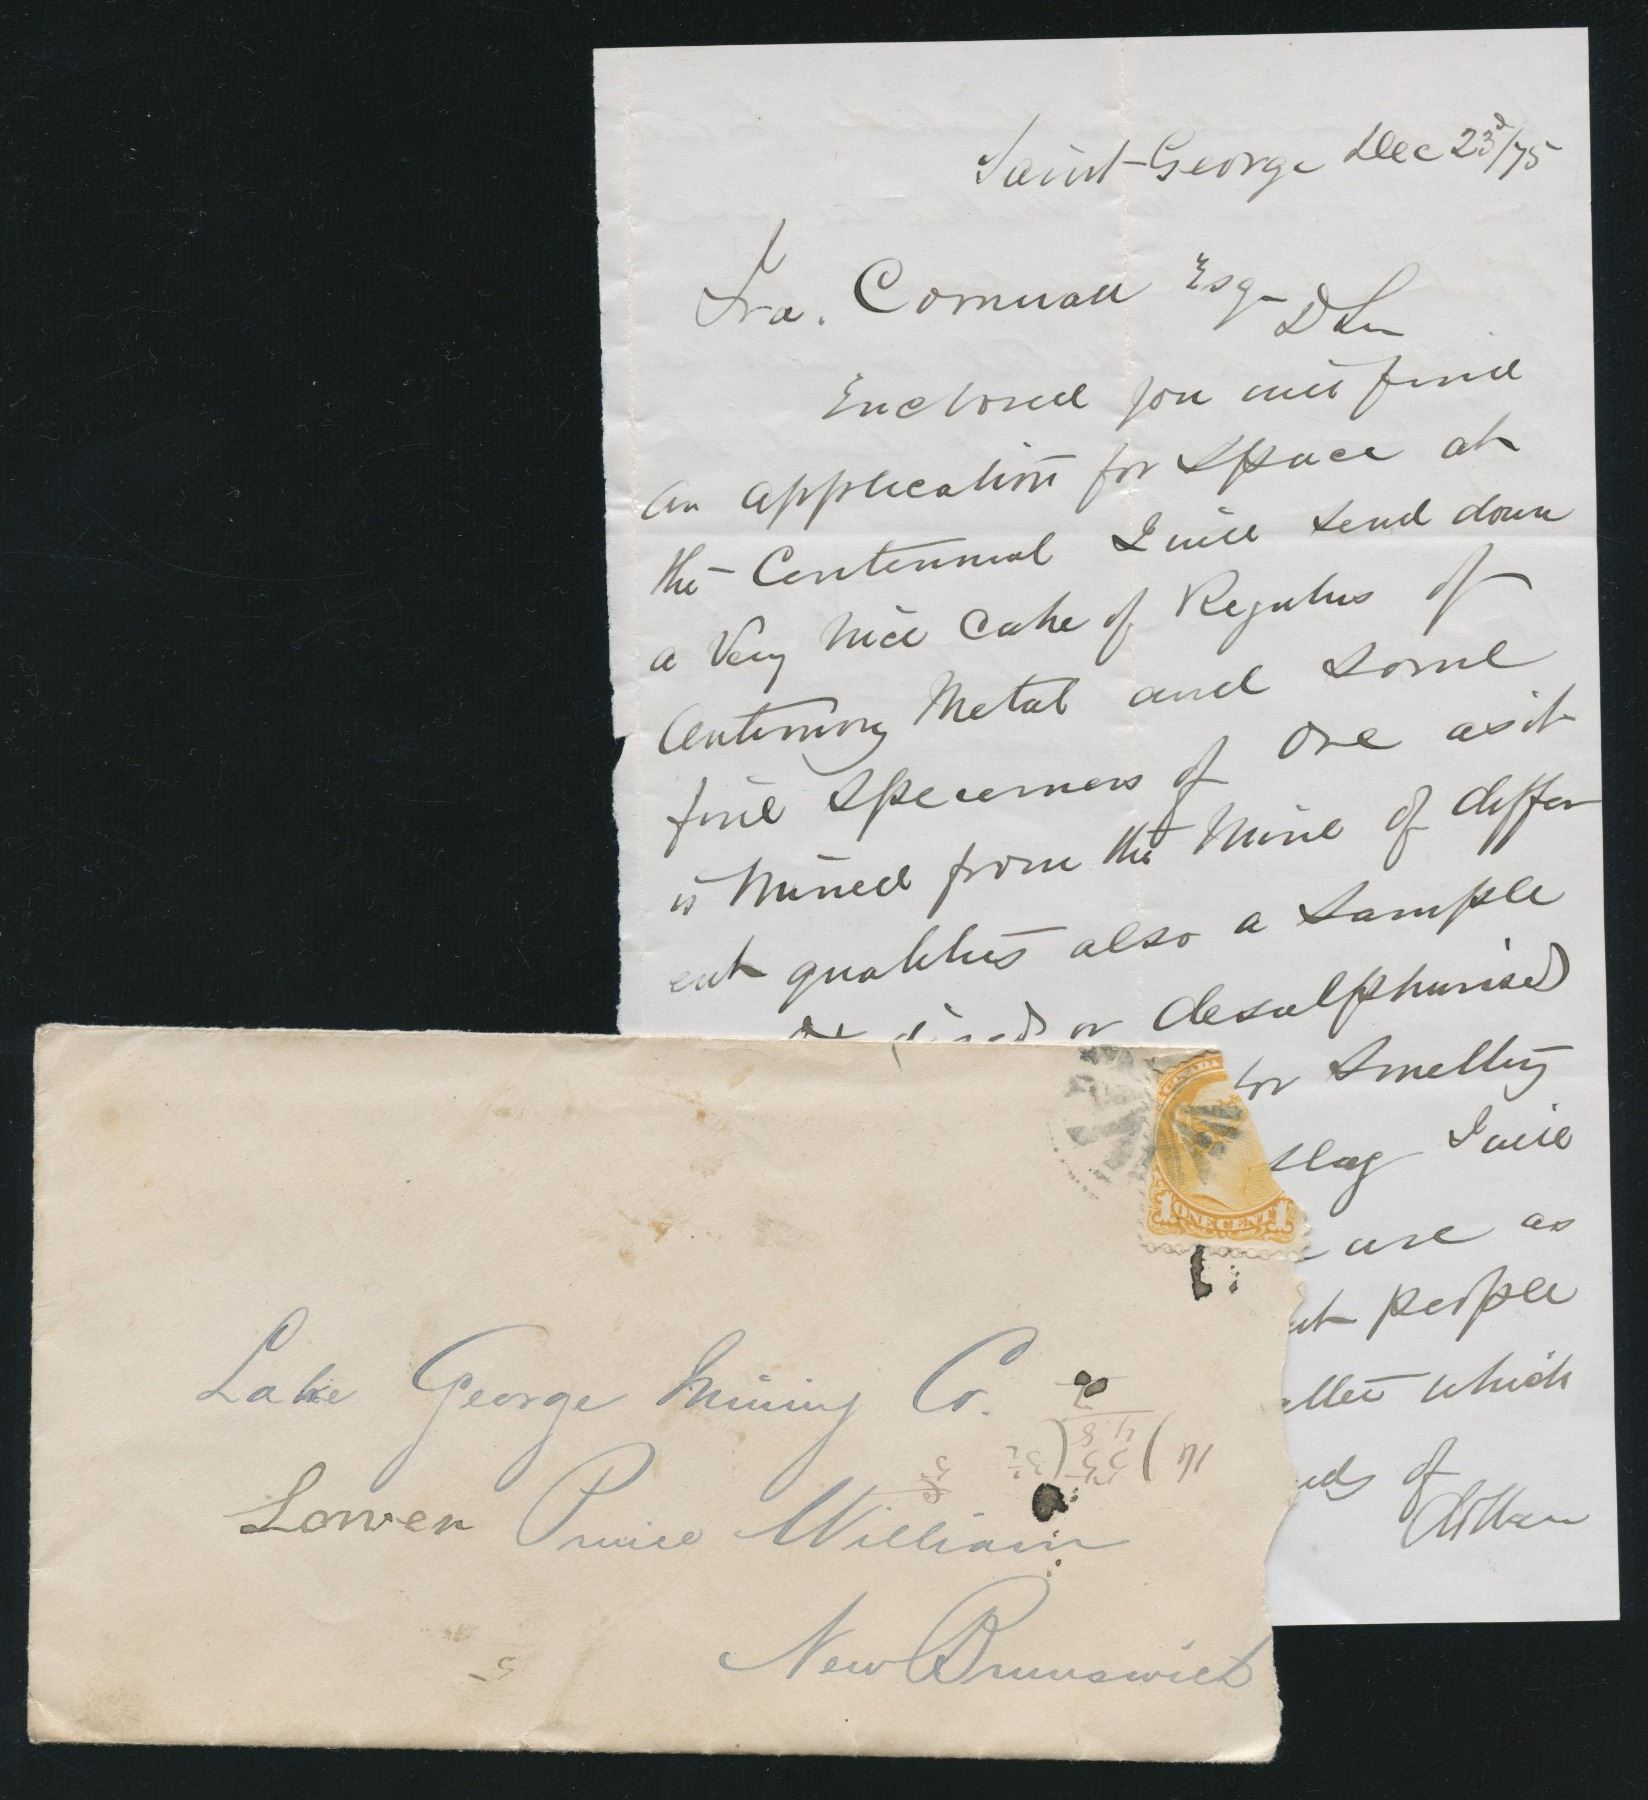 Saint George Dec 23d/75
Ira. Cornwall Esq
D Sir
Enclosed you will find
an application for space at
the Centennial I will send down
a Very Nice Cake of Regulus of
Antimony Metal and some
fine specimens of Ore as it
is Mined from the Mine of differ
ent qualities also a sample
or desulphurised
for Smelting
slag I will
are as
people
which
of
CANADA
1 ONE CENT 1
Lake George Mining Co.
Lower Prince William
New Brunswick